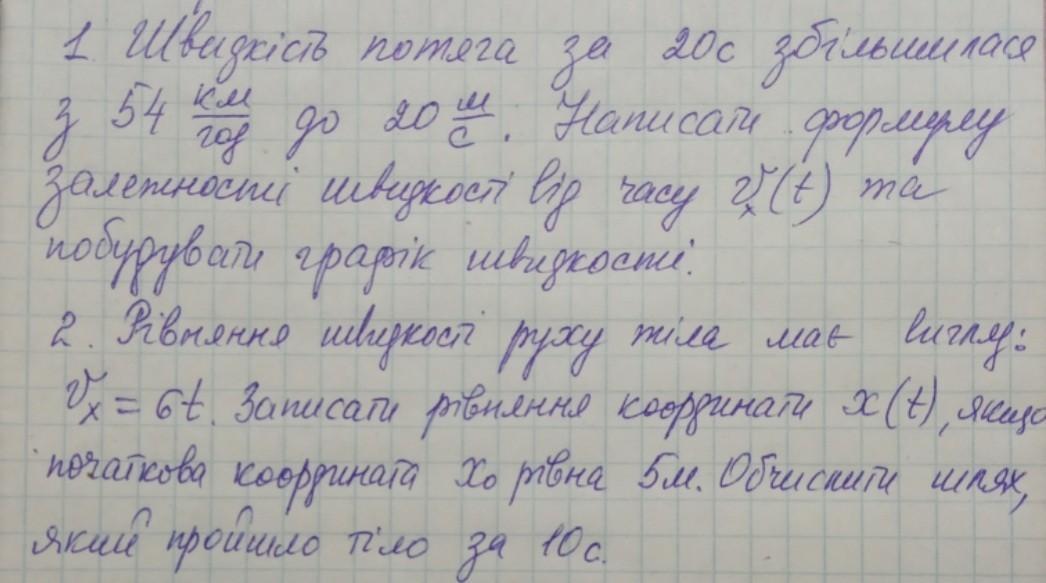 1. Швидкість потяга за 20с збільшилася
з 54 км/год до 20 м/с. Написати формулу
залежності швидкості від часу vₓ(t) та
побудувати графік швидкості.
2. Рівняння швидкості руху тіла має вигляд:
vₓ = 6t. Записати рівняння координати x(t), якщо
початкова координата x₀ рівна 5м. Обчислити шлях,
який пройшло тіло за 10с.